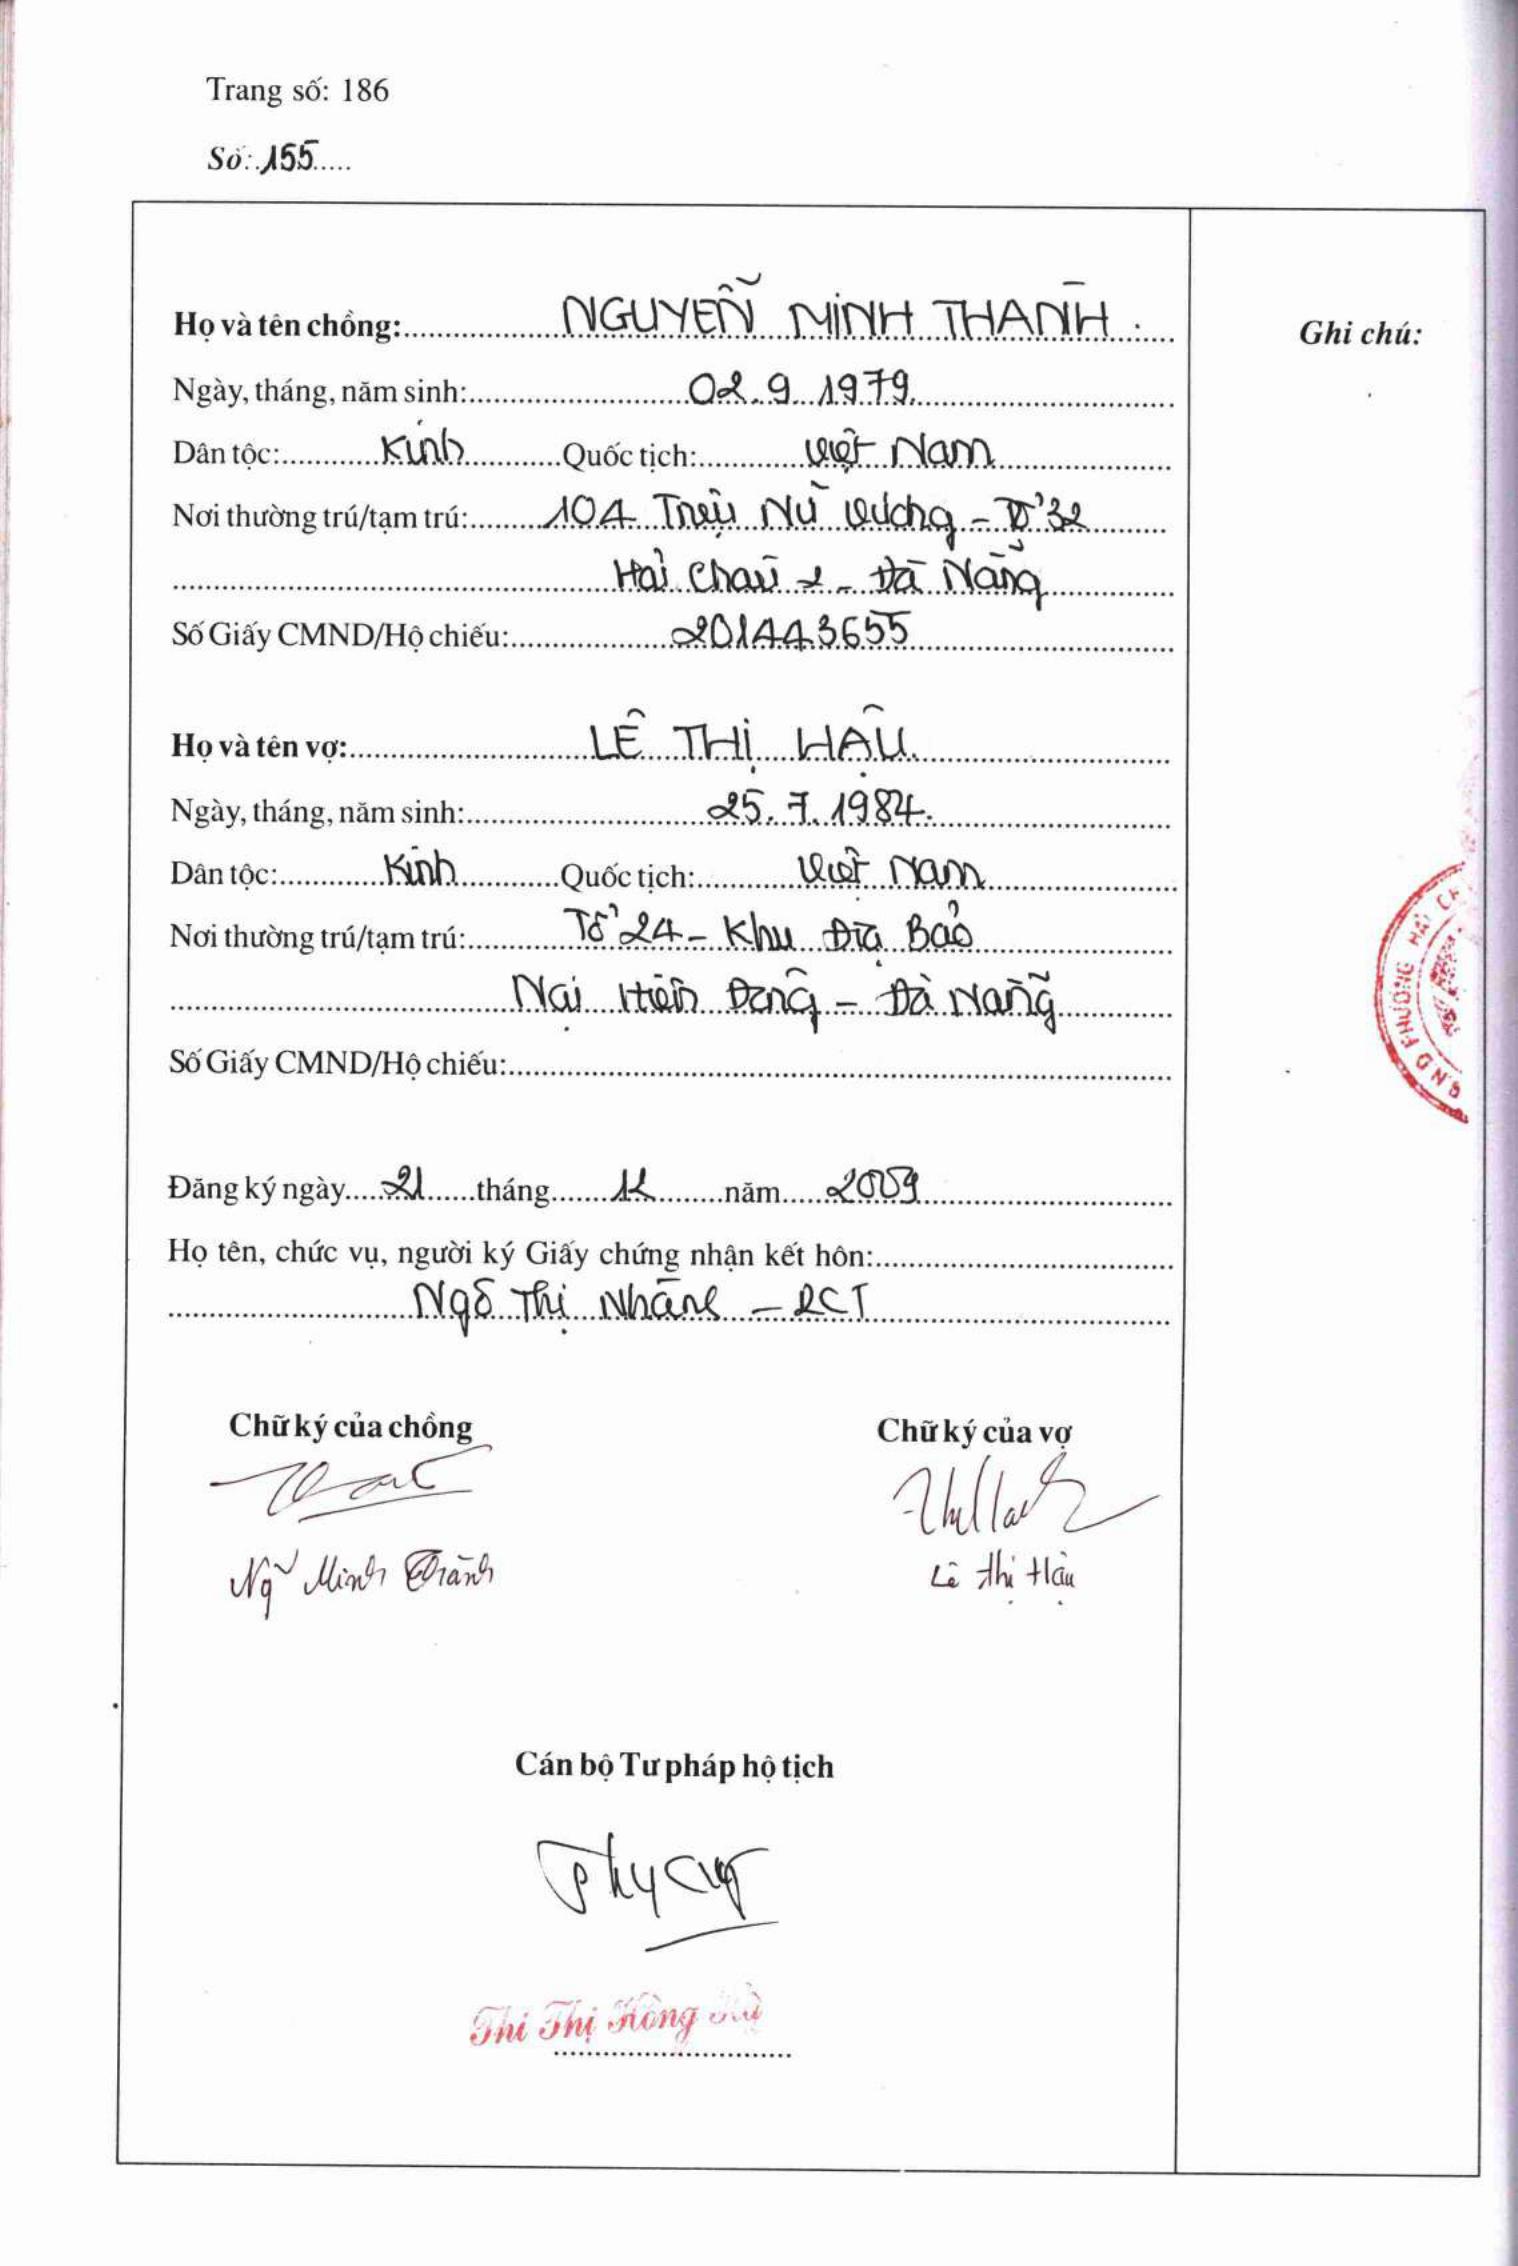 Trang số: 186
Số: 155
Họ và tên chồng: NGUYỄN MINH THÀNH
Ghi chú:
Ngày, tháng, năm sinh: 02.9.1979
Dân tộc: Kinh Quốc tịch: Việt Nam
Nơi thường trú/tạm trú: 104 Triệu Nữ Vương - Tổ 32
Hải Châu 2 - Đà Nẵng
Số Giấy CMND/Hộ chiếu: 201443655
Họ và tên vợ: LÊ THỊ HẬU
Ngày, tháng, năm sinh: 25.7.1984.
Dân tộc: Kinh Quốc tịch: Việt Nam
Nơi thường trú/tạm trú: Tổ 24 - Khu Địa Bảo
Nại Hiên Đông - Đà Nẵng
Số Giấy CMND/Hộ chiếu:
Đăng ký ngày 21 tháng 12 năm 2009
Họ tên, chức vụ, người ký Giấy chứng nhận kết hôn:
Ngô Thị Nhàng - PCT
Chữ ký của chồng Chữ ký của vợ
Ng~ Minh Thành Lê Thị Hậu
Cán bộ Tư pháp hộ tịch
Thi Thị Hồng Hà